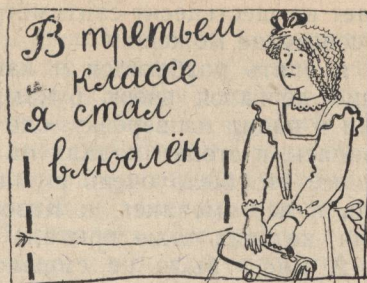 В третьем
классе
я стал
влюблён